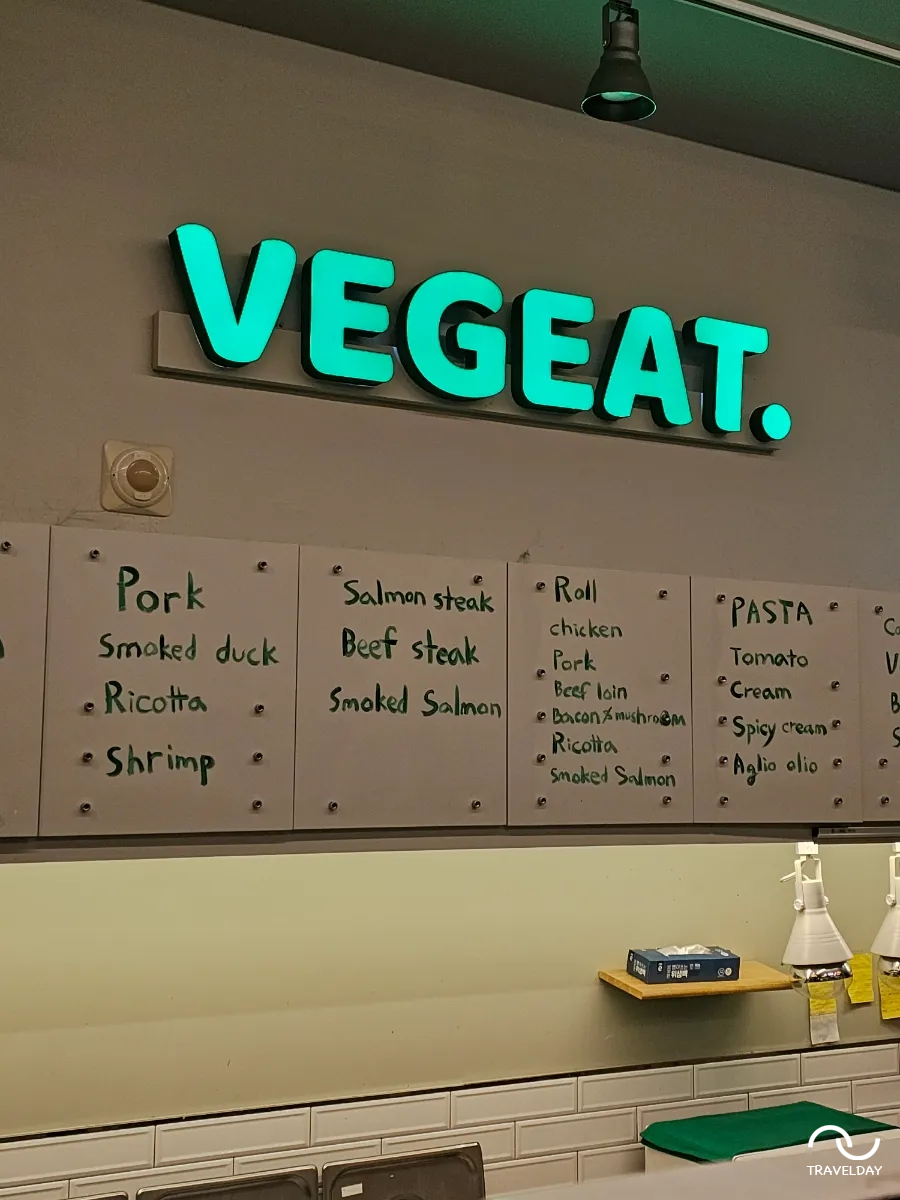 VEGEAT.
Pork
Smoked duck
Ricotta
Shrimp
Salmon steak
Beef steak
Smoked Salmon
Roll
chicken
Pork
Beef loin
Bacon & mushroom
Ricotta
Smoked Salmon
PASTA
Tomato
Cream
Spicy cream
Aglio olio
위생백
TRAVELDAY